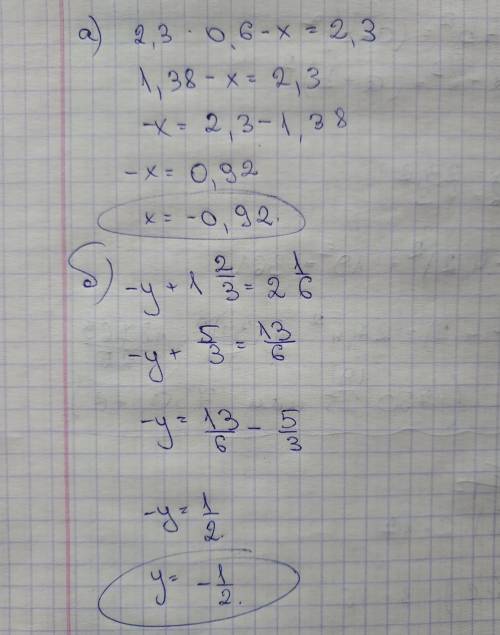 а) 2,3 · 0,6 - x = 2,3
1,38 - x = 2,3
-x = 2,3 - 1,38
-x = 0,92
x = -0,92.
б) -y + 1 2/3 = 2 1/6
-y + 5/3 = 13/6
-y = 13/6 - 5/3
-y = 1/2.
y = -1/2.